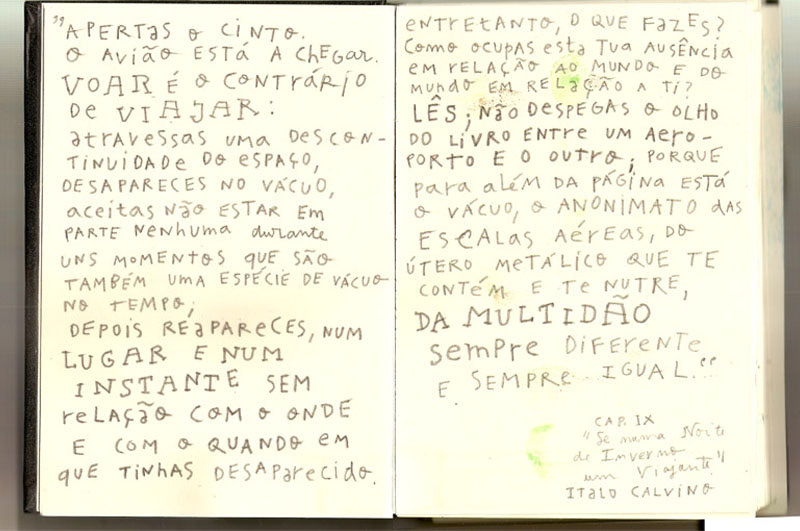 "APERTAS O CINTO.
O AVIÃO ESTÁ A CHEGAR.
VOAR É O CONTRÁRIO
DE VIAJAR:
atravessas uma DESCON-
TINUIDADE DO ESPAÇO,
DESAPARECES NO VÁCUO,
aceitas NÃO ESTAR Em
PARTE Nenhuma durante
UNS MOMENTOS QUE SÃO
TAMBÉM UMA ESPÉCIE DE VÁCUO
NO TEMPO;
DEPOIS REAPARECES, NUM
LUGAR E NUM
INSTANTE SEM
relação COM O ONDE
E COM O QUANDO em
QUE TINHAS DESAPARECIDO.
ENTRETANTO, O QUE FAZES?
Como ocupas esta Tua AUSÊNCIA
em RELAÇÃO AO MUNDO E DO
mundo EM RELAÇÃO A TI?
LÊS; NÃO DESPEGAS O OLHO
DO LIVRO ENTRE UM AERO-
PORTO E O OUTRO; PORQUE
para além DA PÁGINA ESTÁ
O VÁCUO, O ANONIMATO das
ESCALAS AÉREAS, DO
ÚTERO METÁLICO QUE TE
CONTÉM E TE NUTRE,
DA MULTIDÃO
sempre DIFERENTE
E SEMPRE IGUAL."
CAP. IX
"Se numa Noite
de Inverno
um Viajante"
ITALO CALVINO